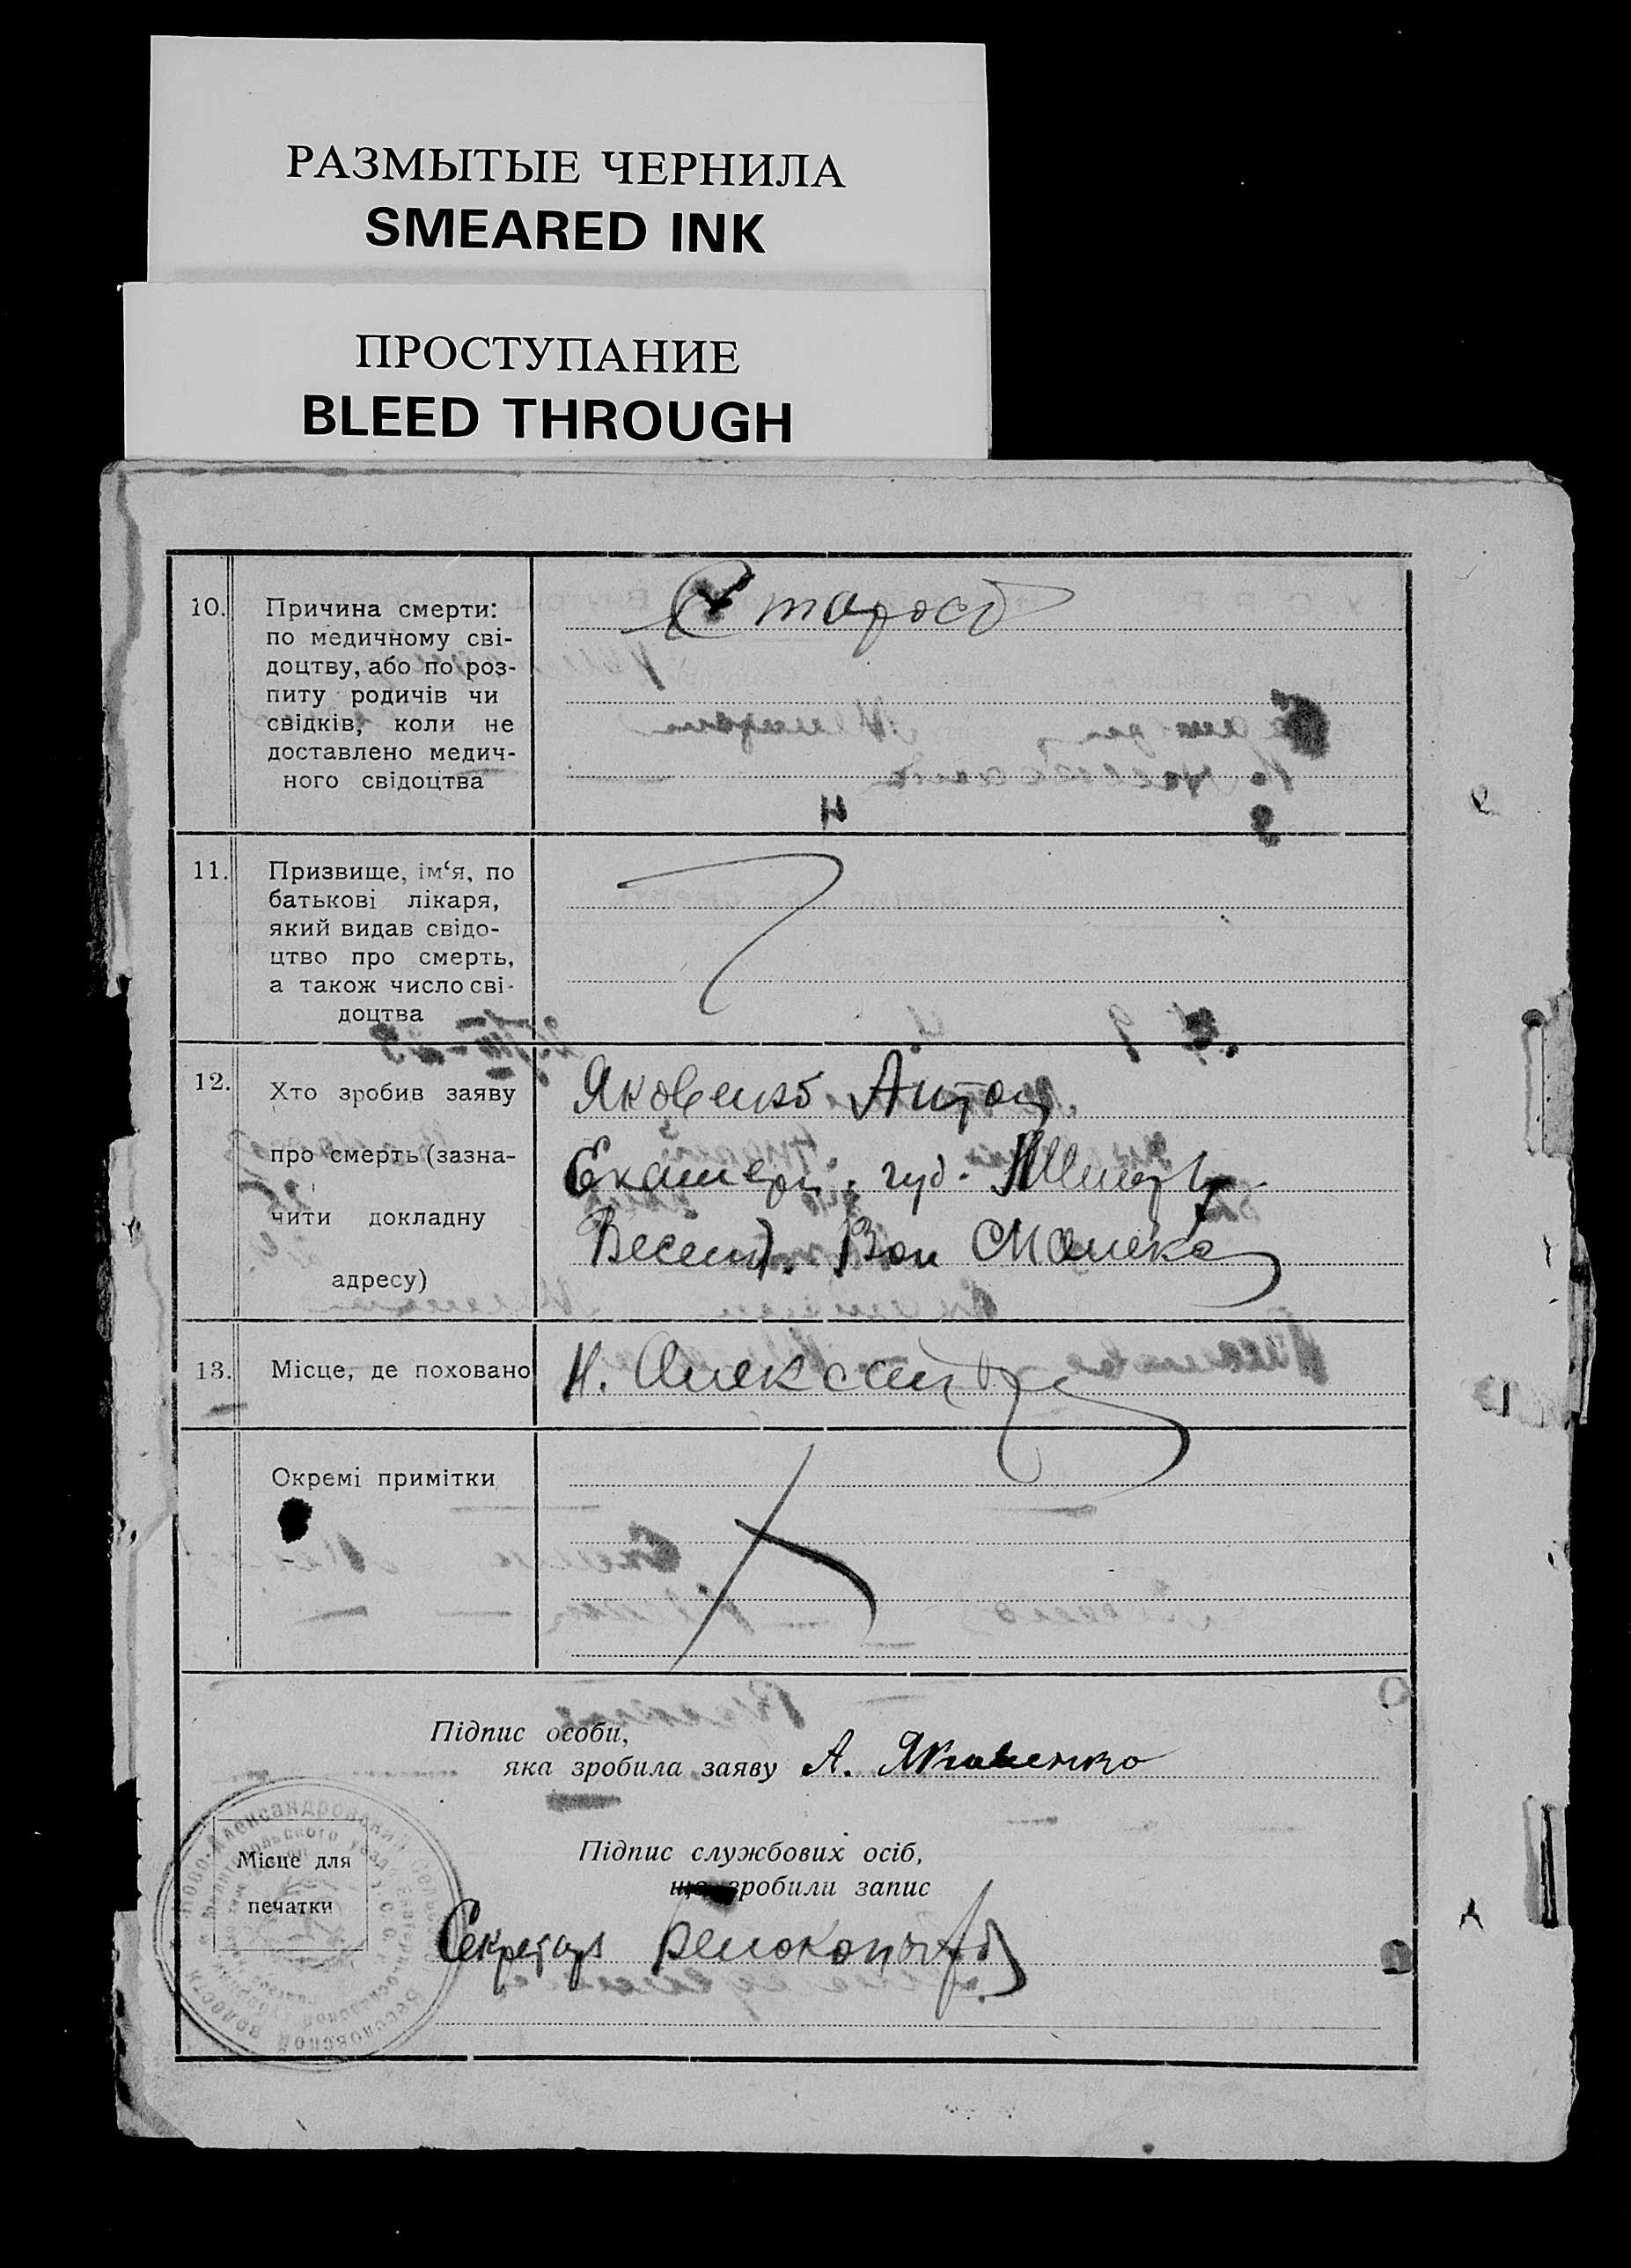 РАЗМЫТЫЕ ЧЕРНИЛА
SMEARED INK
ПРОСТУПАНИЕ
BLEED THROUGH
10.
Причина смерти:
по медичному сві-
доцтву, або по роз-
питу родичів чи
свідків, коли не
доставлено медич-
ного свідоцтва
Старост
11.
Призвище, ім‘я, по
батькові лікаря,
який видав свідо-
цтво про смерть,
а також число сві-
доцтва
12.
Хто зробив заяву
про смерть (зазна-
чити докладну
адресу)
Яковенко Антон
Екатери. губ.
Весел. Вол
13.
Місце, де поховано
Н. Александр
Окремі примітки
Підпис особи,
яка зробила заяву А. Яковенко
Підпис службових осіб,
що зробили запис
Місце для
печатки
Секретарь
Ново-Александровский
Веселовской волости